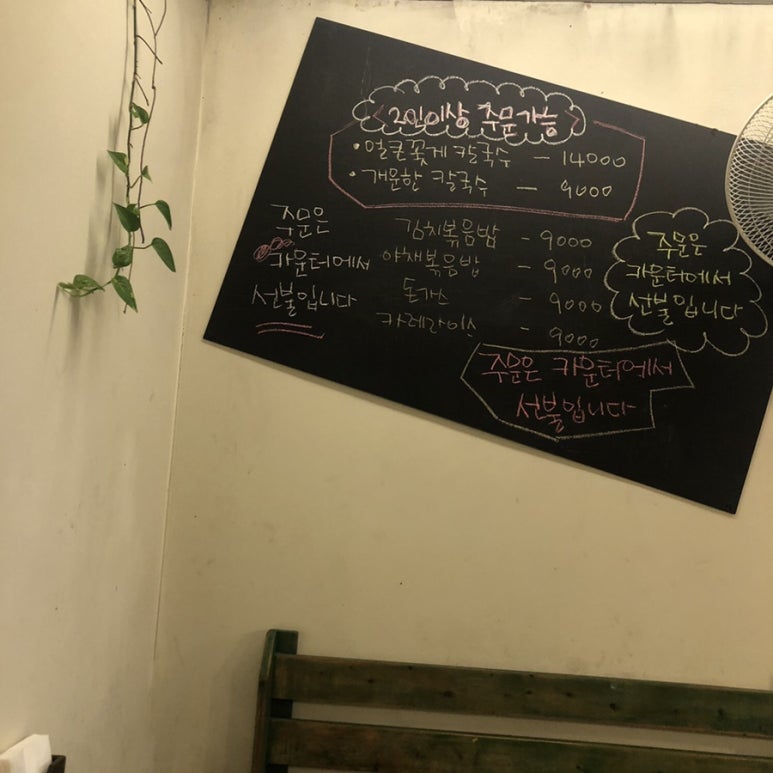 2인이상 주문가능
• 얼큰꽃게 칼국수 - 14000
• 개운한 칼국수 - 9000
주문은
카운터에서
선불입니다
김치볶음밥 - 9000
야채볶음밥 - 9000
돈까스 - 9000
카레라이스 - 9000
주문은
카운터에서
선불입니다
주문은 카운터에서
선불입니다